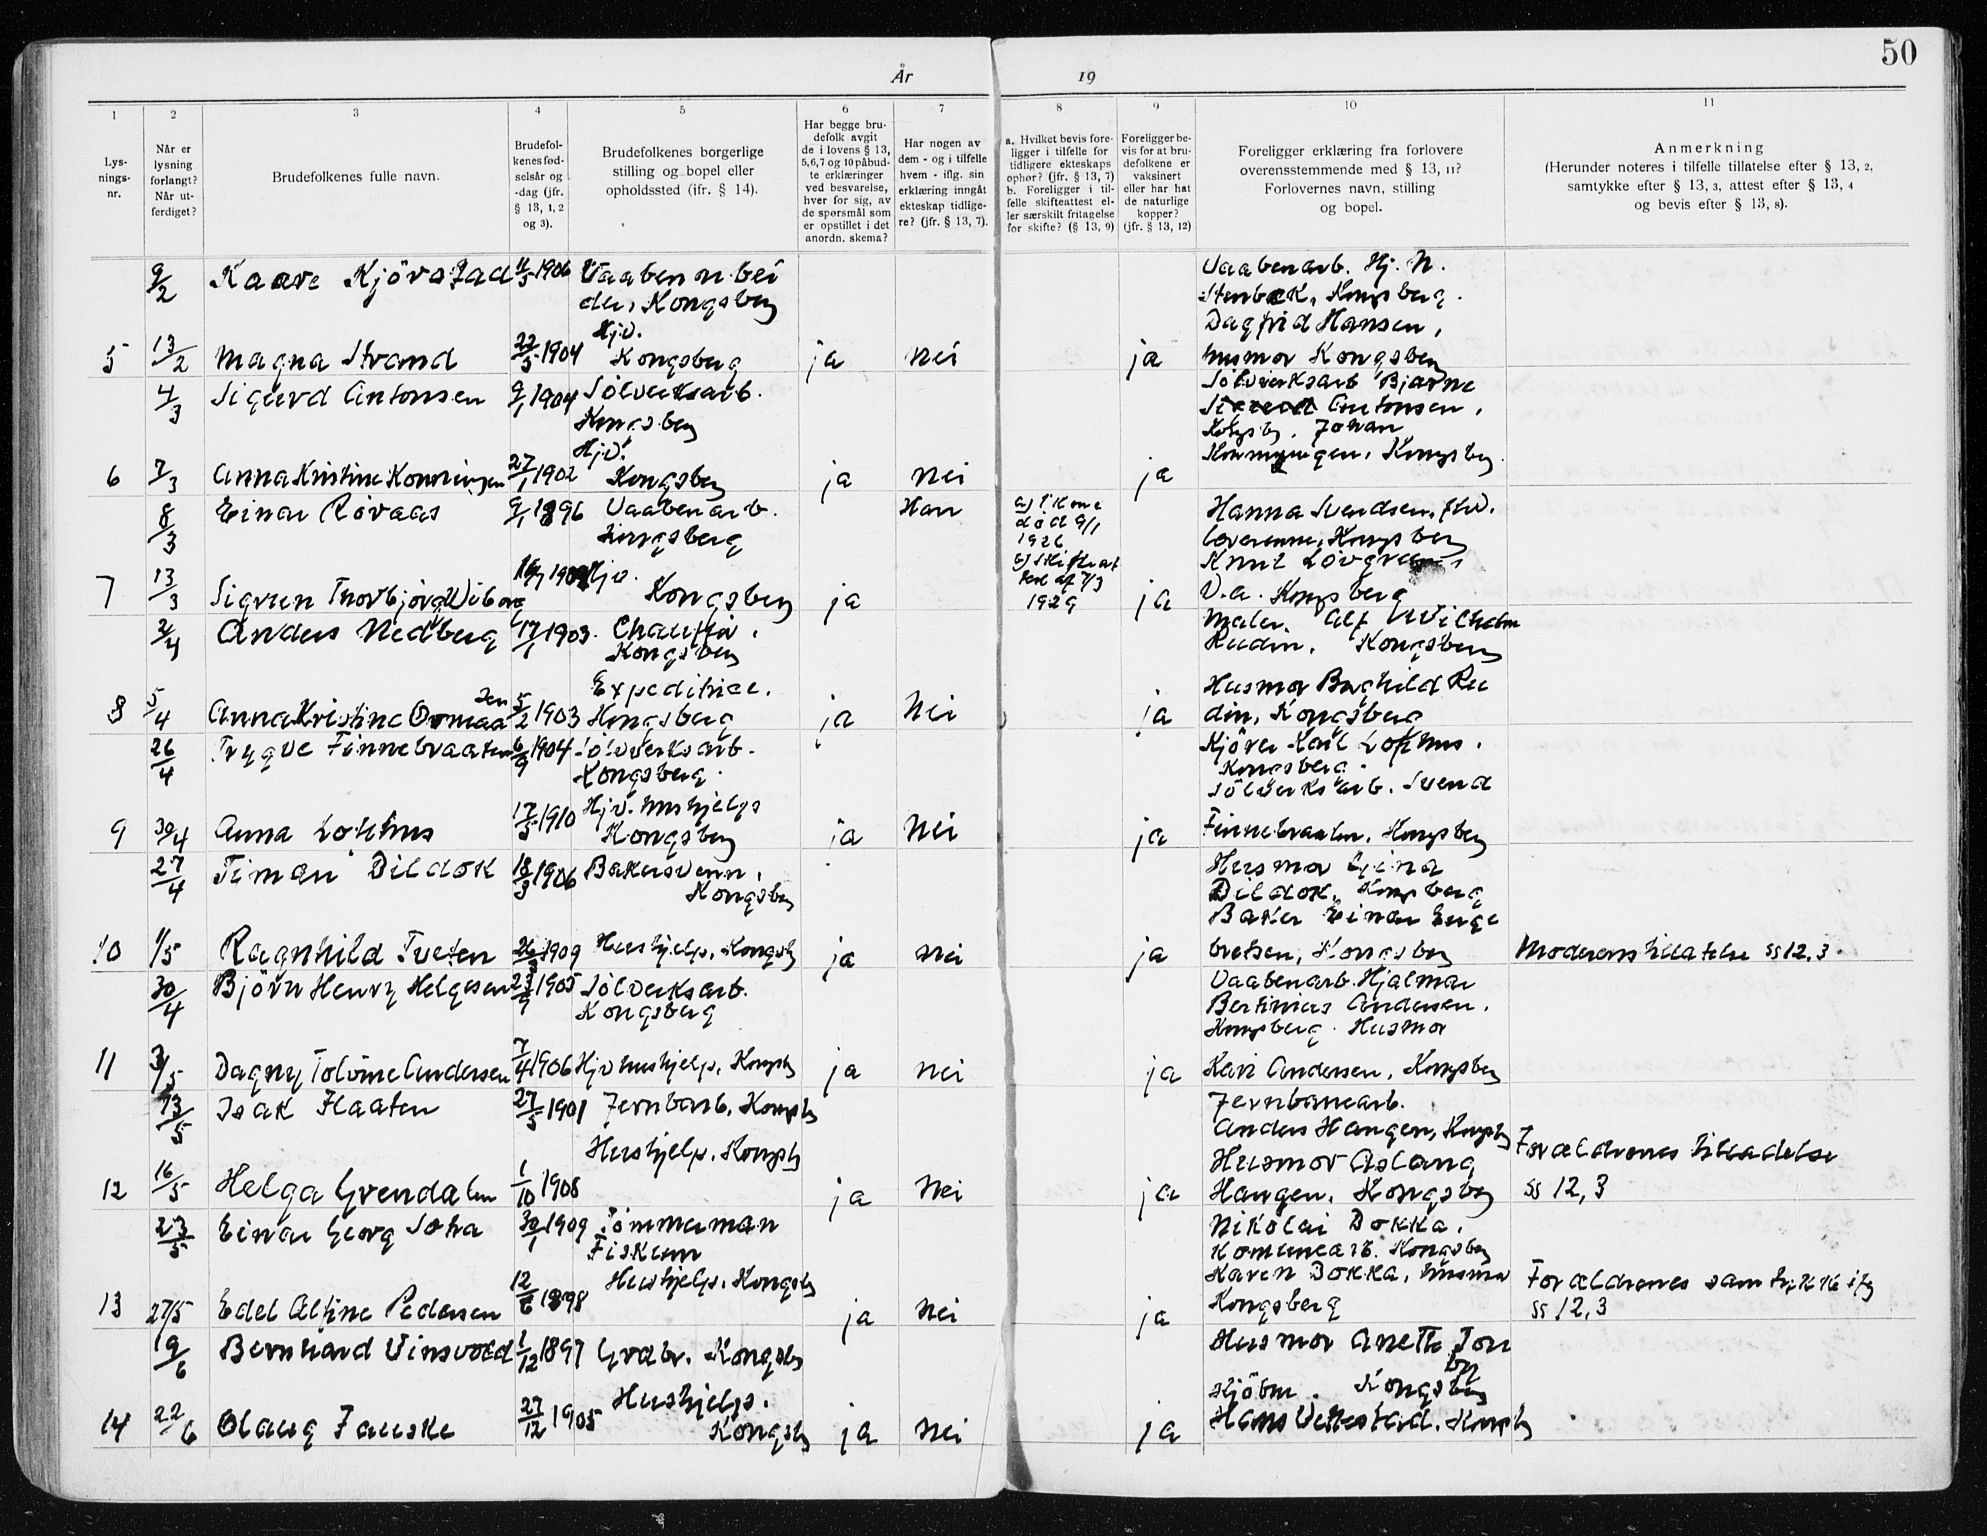 50
År 19
1 2 3 4 5 6 7 8 9 10 11
Lys-
nings-
nr.
Når er
lysning
forlangt?
Når ut-
ferdiget?
Brudefolkenes fulle navn.
Brudefol-
kenes fød-
selsår og
-dag (jfr.
§ 13, 1, 2
og 3).
Brudefolkenes borgerlige
stilling og bopel eller
opholdssted (jfr. § 14).
Har begge bru-
defolk avgit
de i lovens § 13,
5,6,7 og 10 påbud-
te erklæringer
ved besvarelse,
hver for sig, av
de spørsmål som
er opstillet i det
anordn. skema?
Har nogen av
dem - og i tilfelle
hvem - iflg. sin
erklæring inngåt
ekteskap tidlige-
re? (jfr. § 13, 7).
a. Hvilket bevis fore-
ligger i tilfelle for
tidligere ekteskaps
ophør? (jfr. § 13, 7)
b. Foreligger i til-
felle skifteattest el-
ler særskilt fritagelse
for skifte? (§ 13, 9)
Foreligger be-
vis for at bru-
defolkene er
vaksinert
eller har hat
de naturlige
kopper?
(jfr. § 13, 12)
Foreligger erklæring fra forlovere
overensstemmende med § 13, 11?
Forlovernes navn, stilling
og bopel.
Anmerkning
(Herunder noteres i tilfelle tillatelse efter § 13, 2,
samtykke efter § 13, 3, attest efter § 13, 4
og bevis efter § 13, 8).
9/2 Kaare Kjörstad 11/5 1906 Vaabenarbei
der, Kongsberg
Vaabenarb. Hj. N.
Stenbek, Kongsberg.
Dagfrid Hansen,
Hjv.
5 13/2 Magna Strand 22/5 1904 Kongsberg ja nei ja husmor Kongsberg
4/3 Sigurd Antonsen 9/1 1904 Sölverksarb.
Kongsberg
Sölverksarb Bjarne
Antonsen,
Kongsbg. Johan
Hjv.
6 7/3 Anna Kristine Konningen 27/1 1902 Kongsberg ja nei ja Konningen, Kongsberg.
8/3 Einar Rövaas 9/1 1896 Vaabenarb.
Kongsberg
Han
a)
död 9/1
1926
b) Skifteat
test af 7/3
1929
Hanna Svendsen, fhv.
Kongsberg
Knut Lövgreen,
7 13/3 Sigrun Thorbjörg Wiborg 16/7 1909 Hjv.
Kongsberg ja ja V.a. Kongsberg
2/4 Anders Nedberg 17/1 1903. Chaufför.
Kongsberg
Maler. Alf Wilhelm
Rudin. Kongsberg
8 5/4 Anna Kristine Ormaasen 5/2 1903 Expeditrice.
Kongsberg ja Nei ja
Husmor Borghild Ru
din, Kongsberg
26/4 Trygve Finnebraaten 6/9 1904 Sölvverksarb.
Kongsberg.
Kjörer Karl Lofthus.
Kongsberg.
Sölverksarb. Svend
9 30/4 Anna Lofthus 17/5 1910 Hjv. hushjelp
Kongsberg ja Nei ja Finnebraaten, Kongsberg
27/4 Timan Dildok 18/3 1906 Bakersvenn,
Kongsberg
Husmor Gina
Dildok, Kongsberg
Baker Einar Enge
10 1/5 Ragnhild Tveten 26/3 1909 Hushjelp, Kongsbg ja nei ja bretsen, Kongsberg Moderens tillatelse §§ 12, 3.
30/4 Björn Henry Helgesen 23/9 1905 Sölverksarb.
Kongsberg
Vaabenarb. Hjalmar
Bertinius Andersen.
Kongsberg. Husmor
11 3/5 Dagny Tolvine Andersen 7/4 1906 Hjv hushjelp, Kongsbg ja nei ja Kari Andersen, Kongsberg
13/5 Isak Flaaten 27/5 1901 Jernbarb, Kongsbg
Hushjelp, Kongsbg
Jernbanearb.
Anders Haugen, Kongsbg
Husmor Aslaug
Forældrenes tilladelse
12 16/5 Helga Grendalen 1/10 1908 ja Nei ja Haugen, Kongsberg §§ 12, 3
23/5 Einar Georg Solva 30/1 1909 Tömmerman
Fiskum
Nikolai Dokka,
Komunearb. Kongsberg
13 27/5 Edel Alfine Pedersen 12/6 1898 Hushjelp. Kongsbg ja Nei ja
Karen Dokka, husmor
Kongsberg
Forældrenes samtykke iflg
§§ 12, 3
9/6 Bernhard Vinsvold 1/12 1897 Grdbr. Kongsbg
Husmor Anette Jon
Kongsberg
Hushjelp.
14 22/6 Olaug Fauske 27/12 1905 Kongsbg ja nei ja Hans Vettestad, Kongsbg